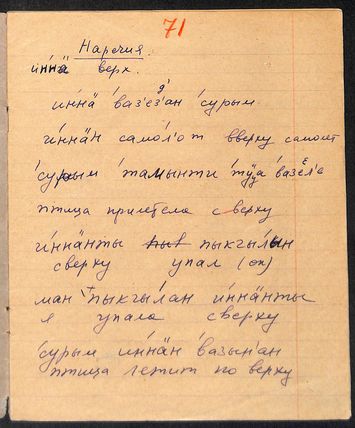 71
Наречия.
и́ннӓ верх.
и́ннӓ ва́з'ез'ан су́рым
и́ннӓн самол'от вверху самолет
су́рым та́мынти тӱ́уа ва́зел'е
птица прилетела с верху
и́ннӓнты пыкгы́лын
сверху упал (он)
ман пыкгы́лан и́ннӓнты
я упала сверху
су́рым и́ннӓн ва́зын'ан
птица летит по верху